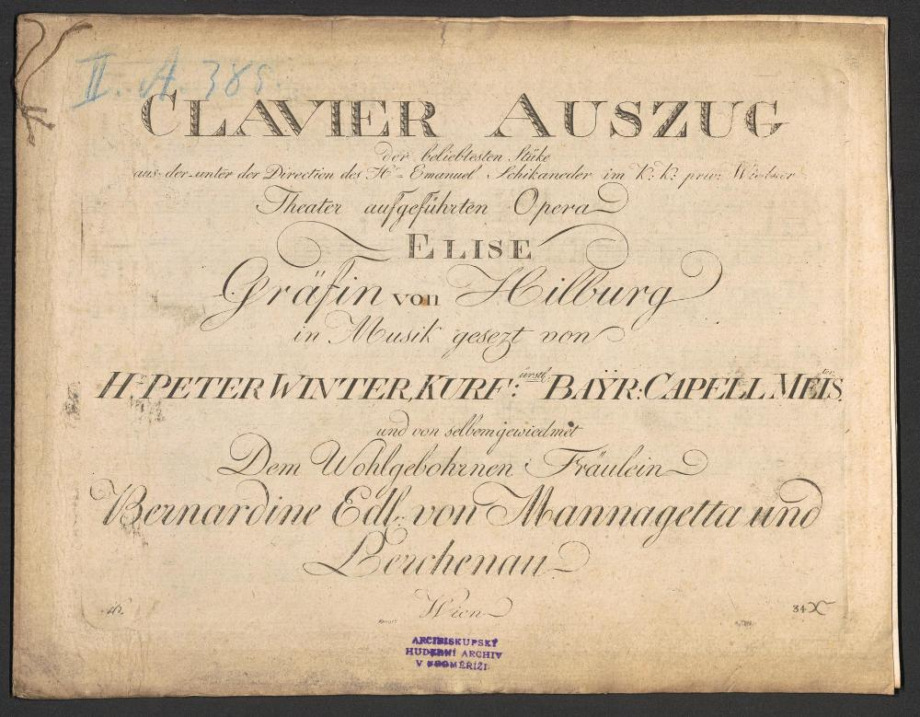 II. A. 385
CLAVIER AUSZUG
der beliebtesten Stüke
aus der unter der Direction des Hn Emanuel Schikaneder im k: k: priv: Wiedner
Theater aufgeführten Opera
ELISE
Gräfin von Hilburg
in Musik gesezt von
H. PETER WINTER, KURF:ürstl. BAŸR: CAPELL MEISter
und von selbem gewiedmet
Dem Wohlgebohrnen Fräulein
Bernardine Edl: von Mannagetta und
Lerchenau
Wien
34 X
ARCIBISKUPSKÝ
HUDEBNÍ ARCHIV
V KROMĚŘÍŽI